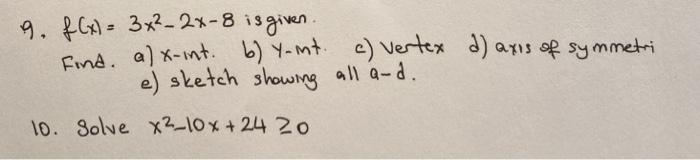 9. f(x) = 3x²-2x-8 is given.
Find. a) x-int. b) Y-int. c) Vertex d) axis of symmetri
e) sketch showing all a-d.
10. Solve x²-10x+24 ≥0